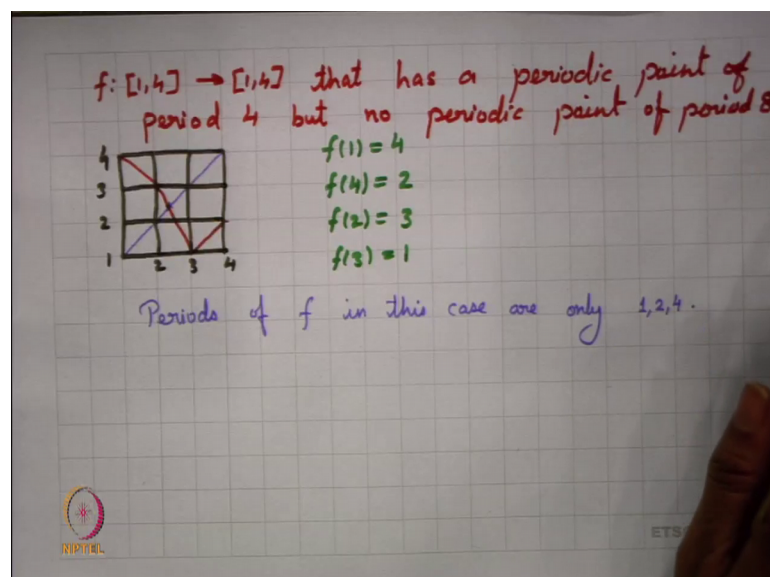 f: [1,4] → [1,4] that has a periodic point of
period 4 but no periodic point of period 8
4
3
2
1
2 3 4
f(1) = 4
f(4) = 2
f(2) = 3
f(3) = 1
Periods of f in this case are only 1,2,4.
NPTEL